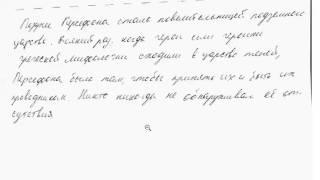 Персефона стала повелительницей подземного
царства. Всякий раз, когда герои или героини
греческой мифологии сходили в царство теней,
Персефона была там, чтобы принять их и быть их
проводником. Никто никогда не обнаруживал её от-
сутствия.